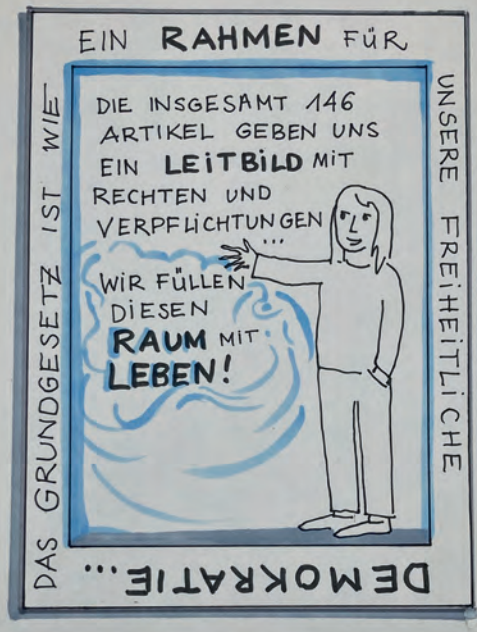 DAS GRUNDGESETZ IST WIE
EIN RAHMEN FÜR
UNSERE FREIHEITLICHE
DEMOKRATIE...
DIE INSGESAMT 146
ARTIKEL GEBEN UNS
EIN LEITBILD MIT
RECHTEN UND
VERPFLICHTUNGEN
...
WIR FÜLLEN
DIESEN
RAUM MIT
LEBEN!